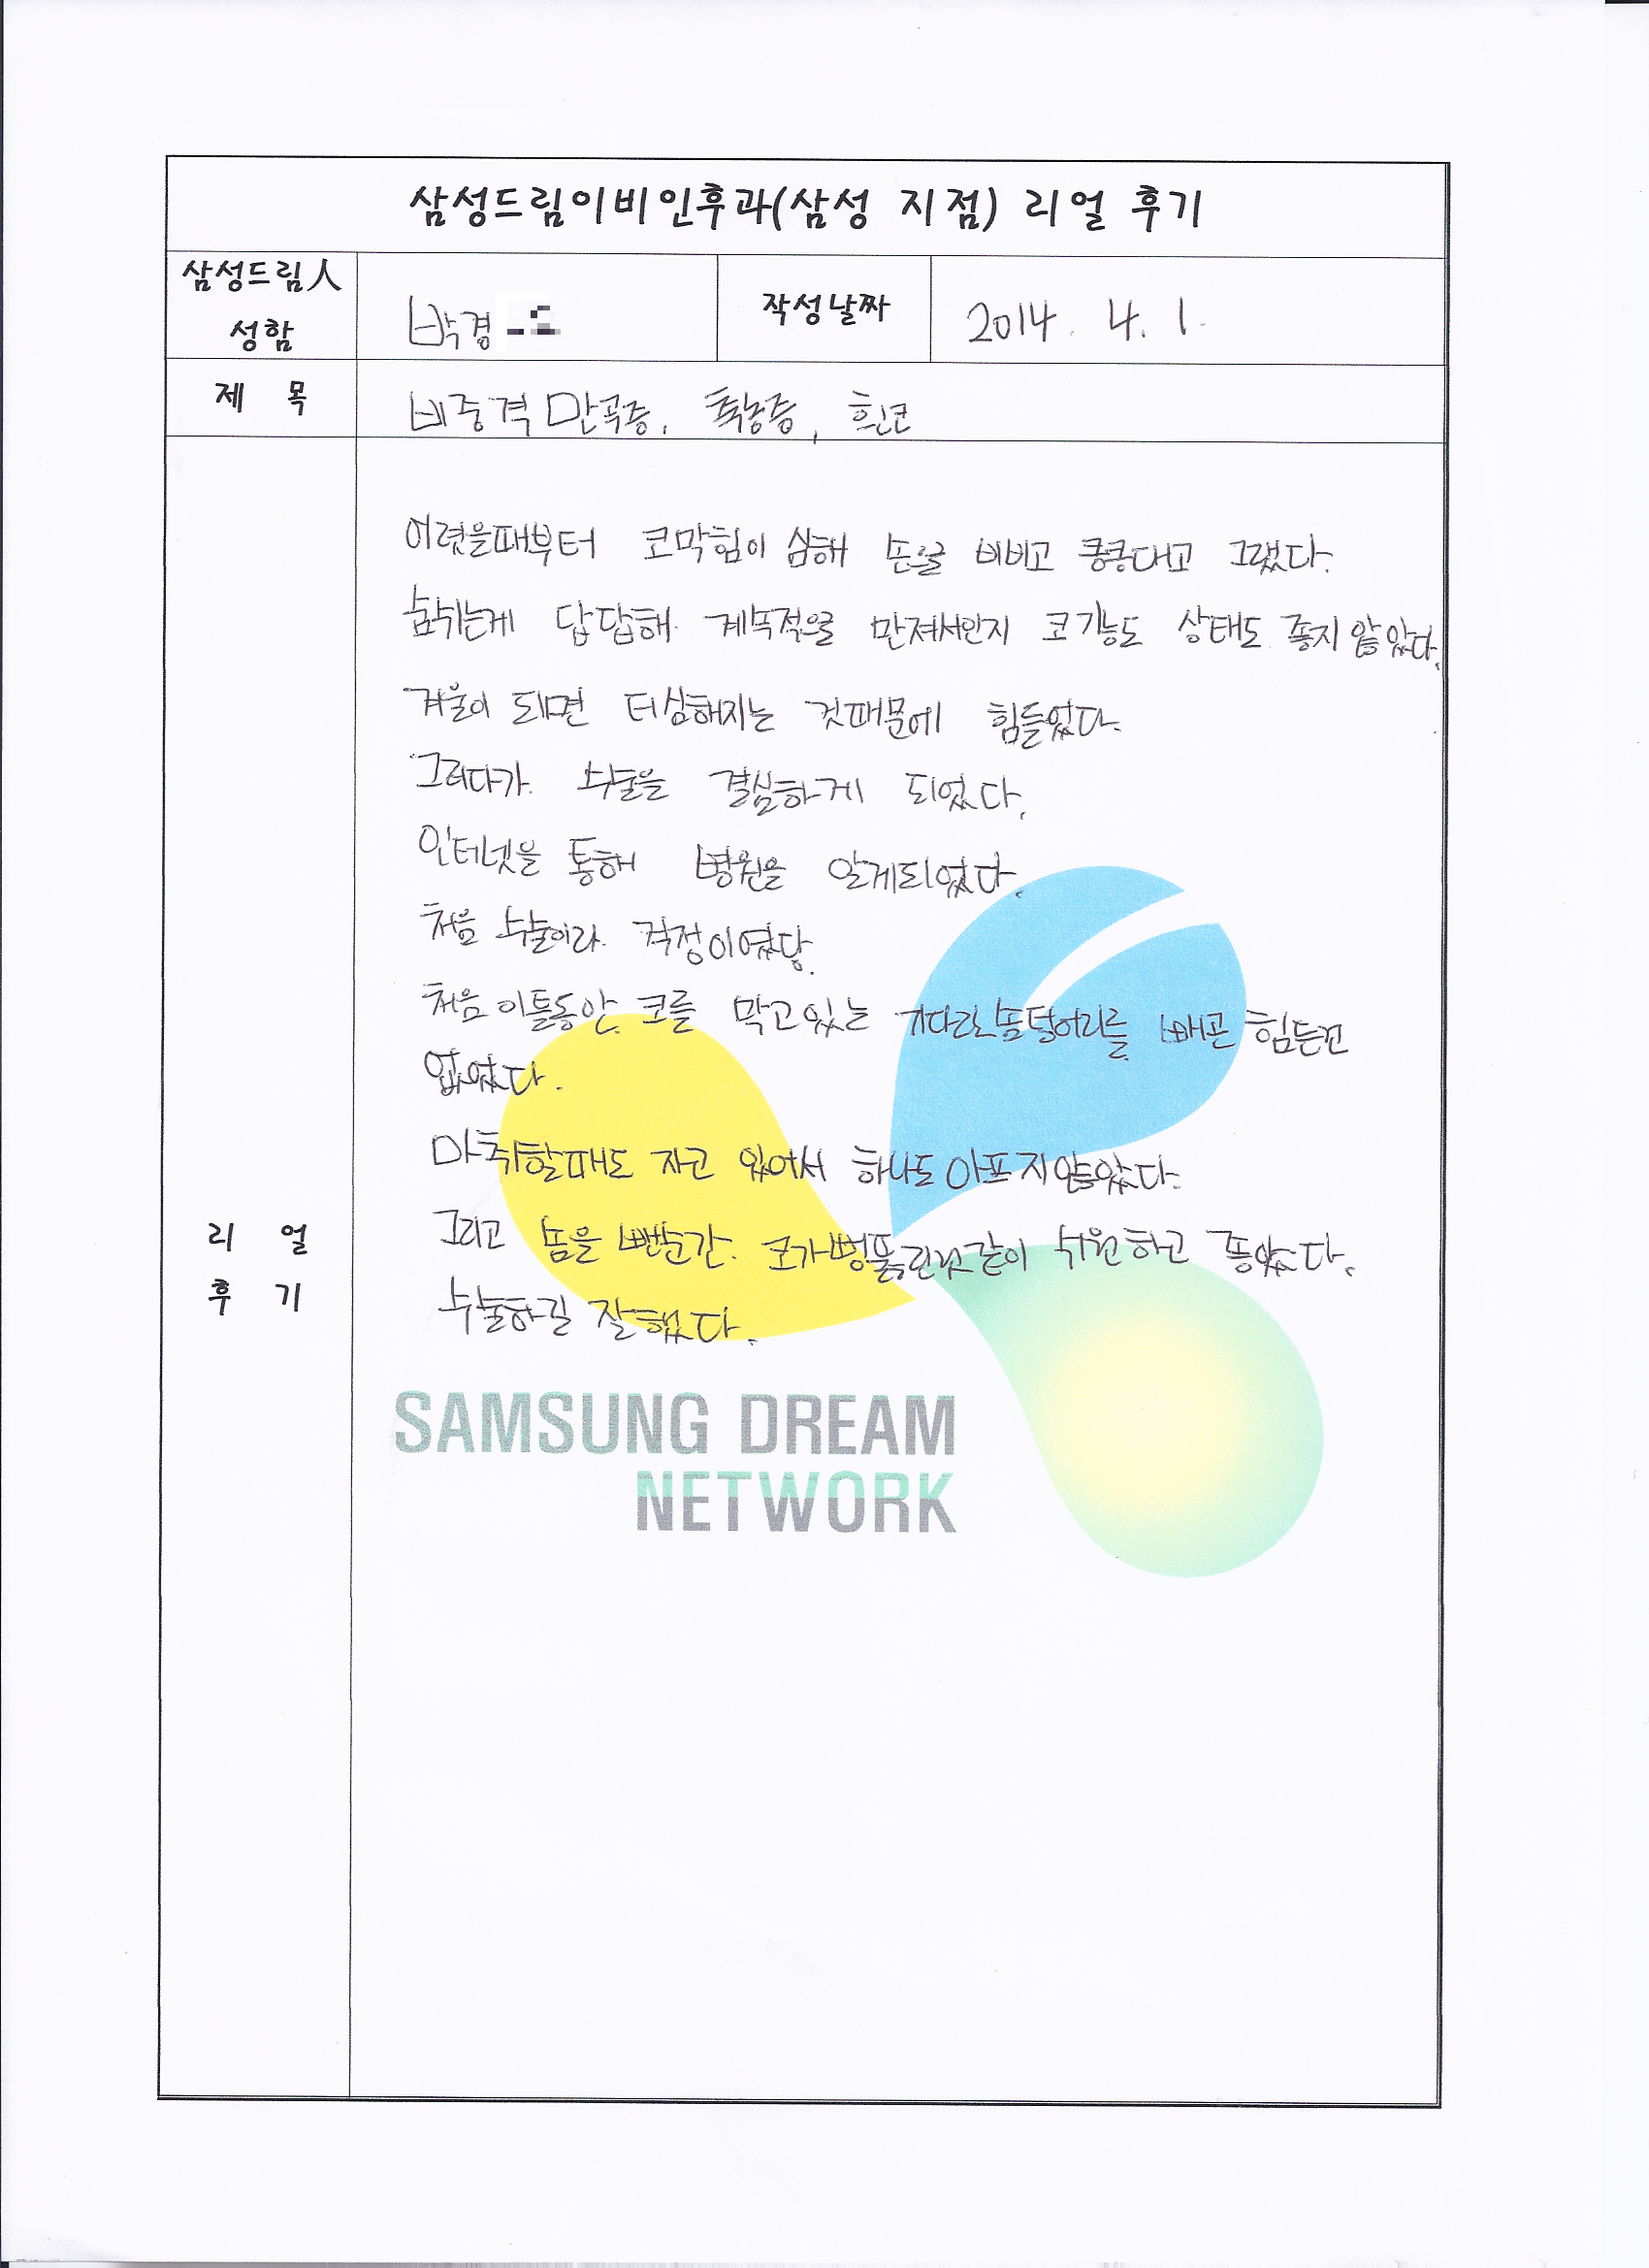 삼성드림이비인후과(삼성 지점) 리얼 후기
삼성드림人
성함
박경
작성날짜
2014. 4. 1.
제 목
비중격만곡증, 축농증, 휜코
어렸을때부터 코막힘이 심해 손을 비비고 킁킁대고 그랬다.
숨쉬는게 답답해 계속적으로 만져서인지 코기능도 상태도 좋지 않았다.
겨울이 되면 더심해지는 것때문에 힘들었다.
그러다가 수술을 결심하게 되었다.
인터넷을 통해 병원을 알게되었다.
처음 수술이라 걱정이였당.
처음 이틀동안 코를 막고있는 기다란 솜덩어리를 빼곤 힘든건
없었다.
마취할때도 자고 있어서 하나도 아프지않았다.
그리고 솜을 뺀순간 코가뻥뚫린것같이 쉬원하고 좋았다.
수술하길 잘했다.
리 얼
후 기
SAMSUNG DREAM
NETWORK